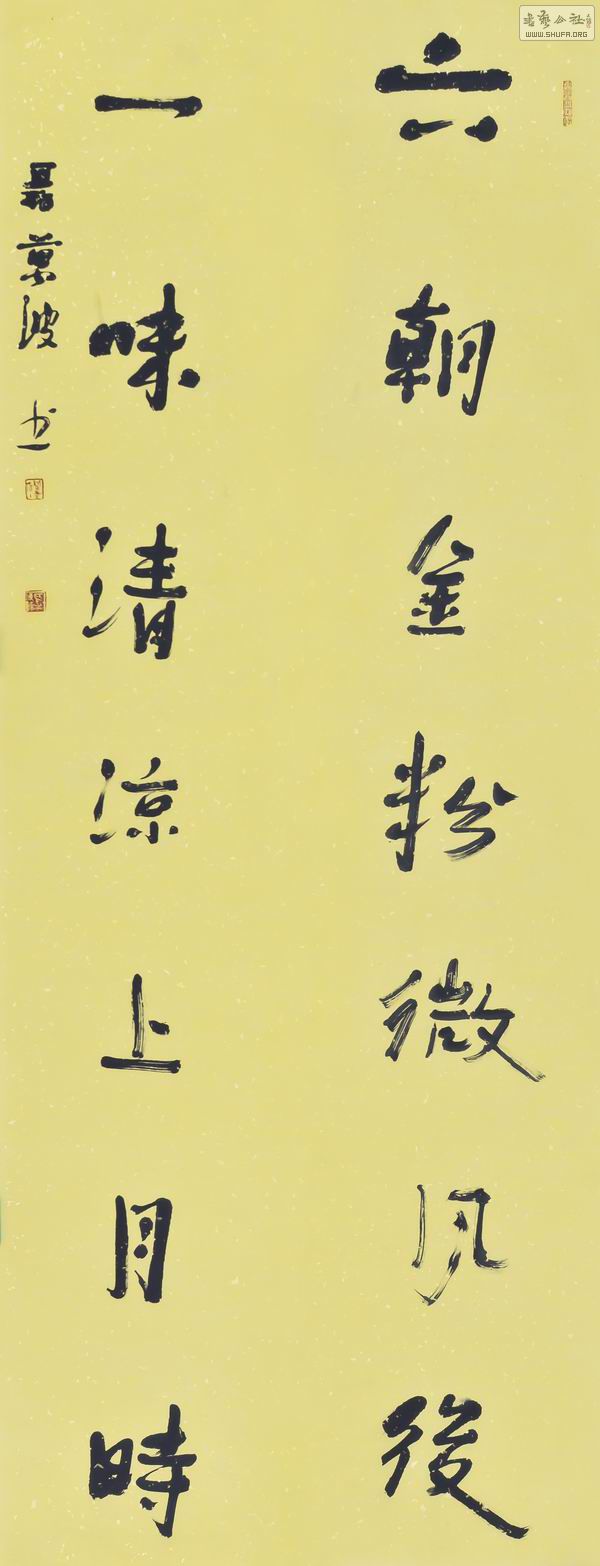 六朝金粉微风後
一味清凉上月時
聂万波书
書艺公社
WWW.SHUFA.ORG